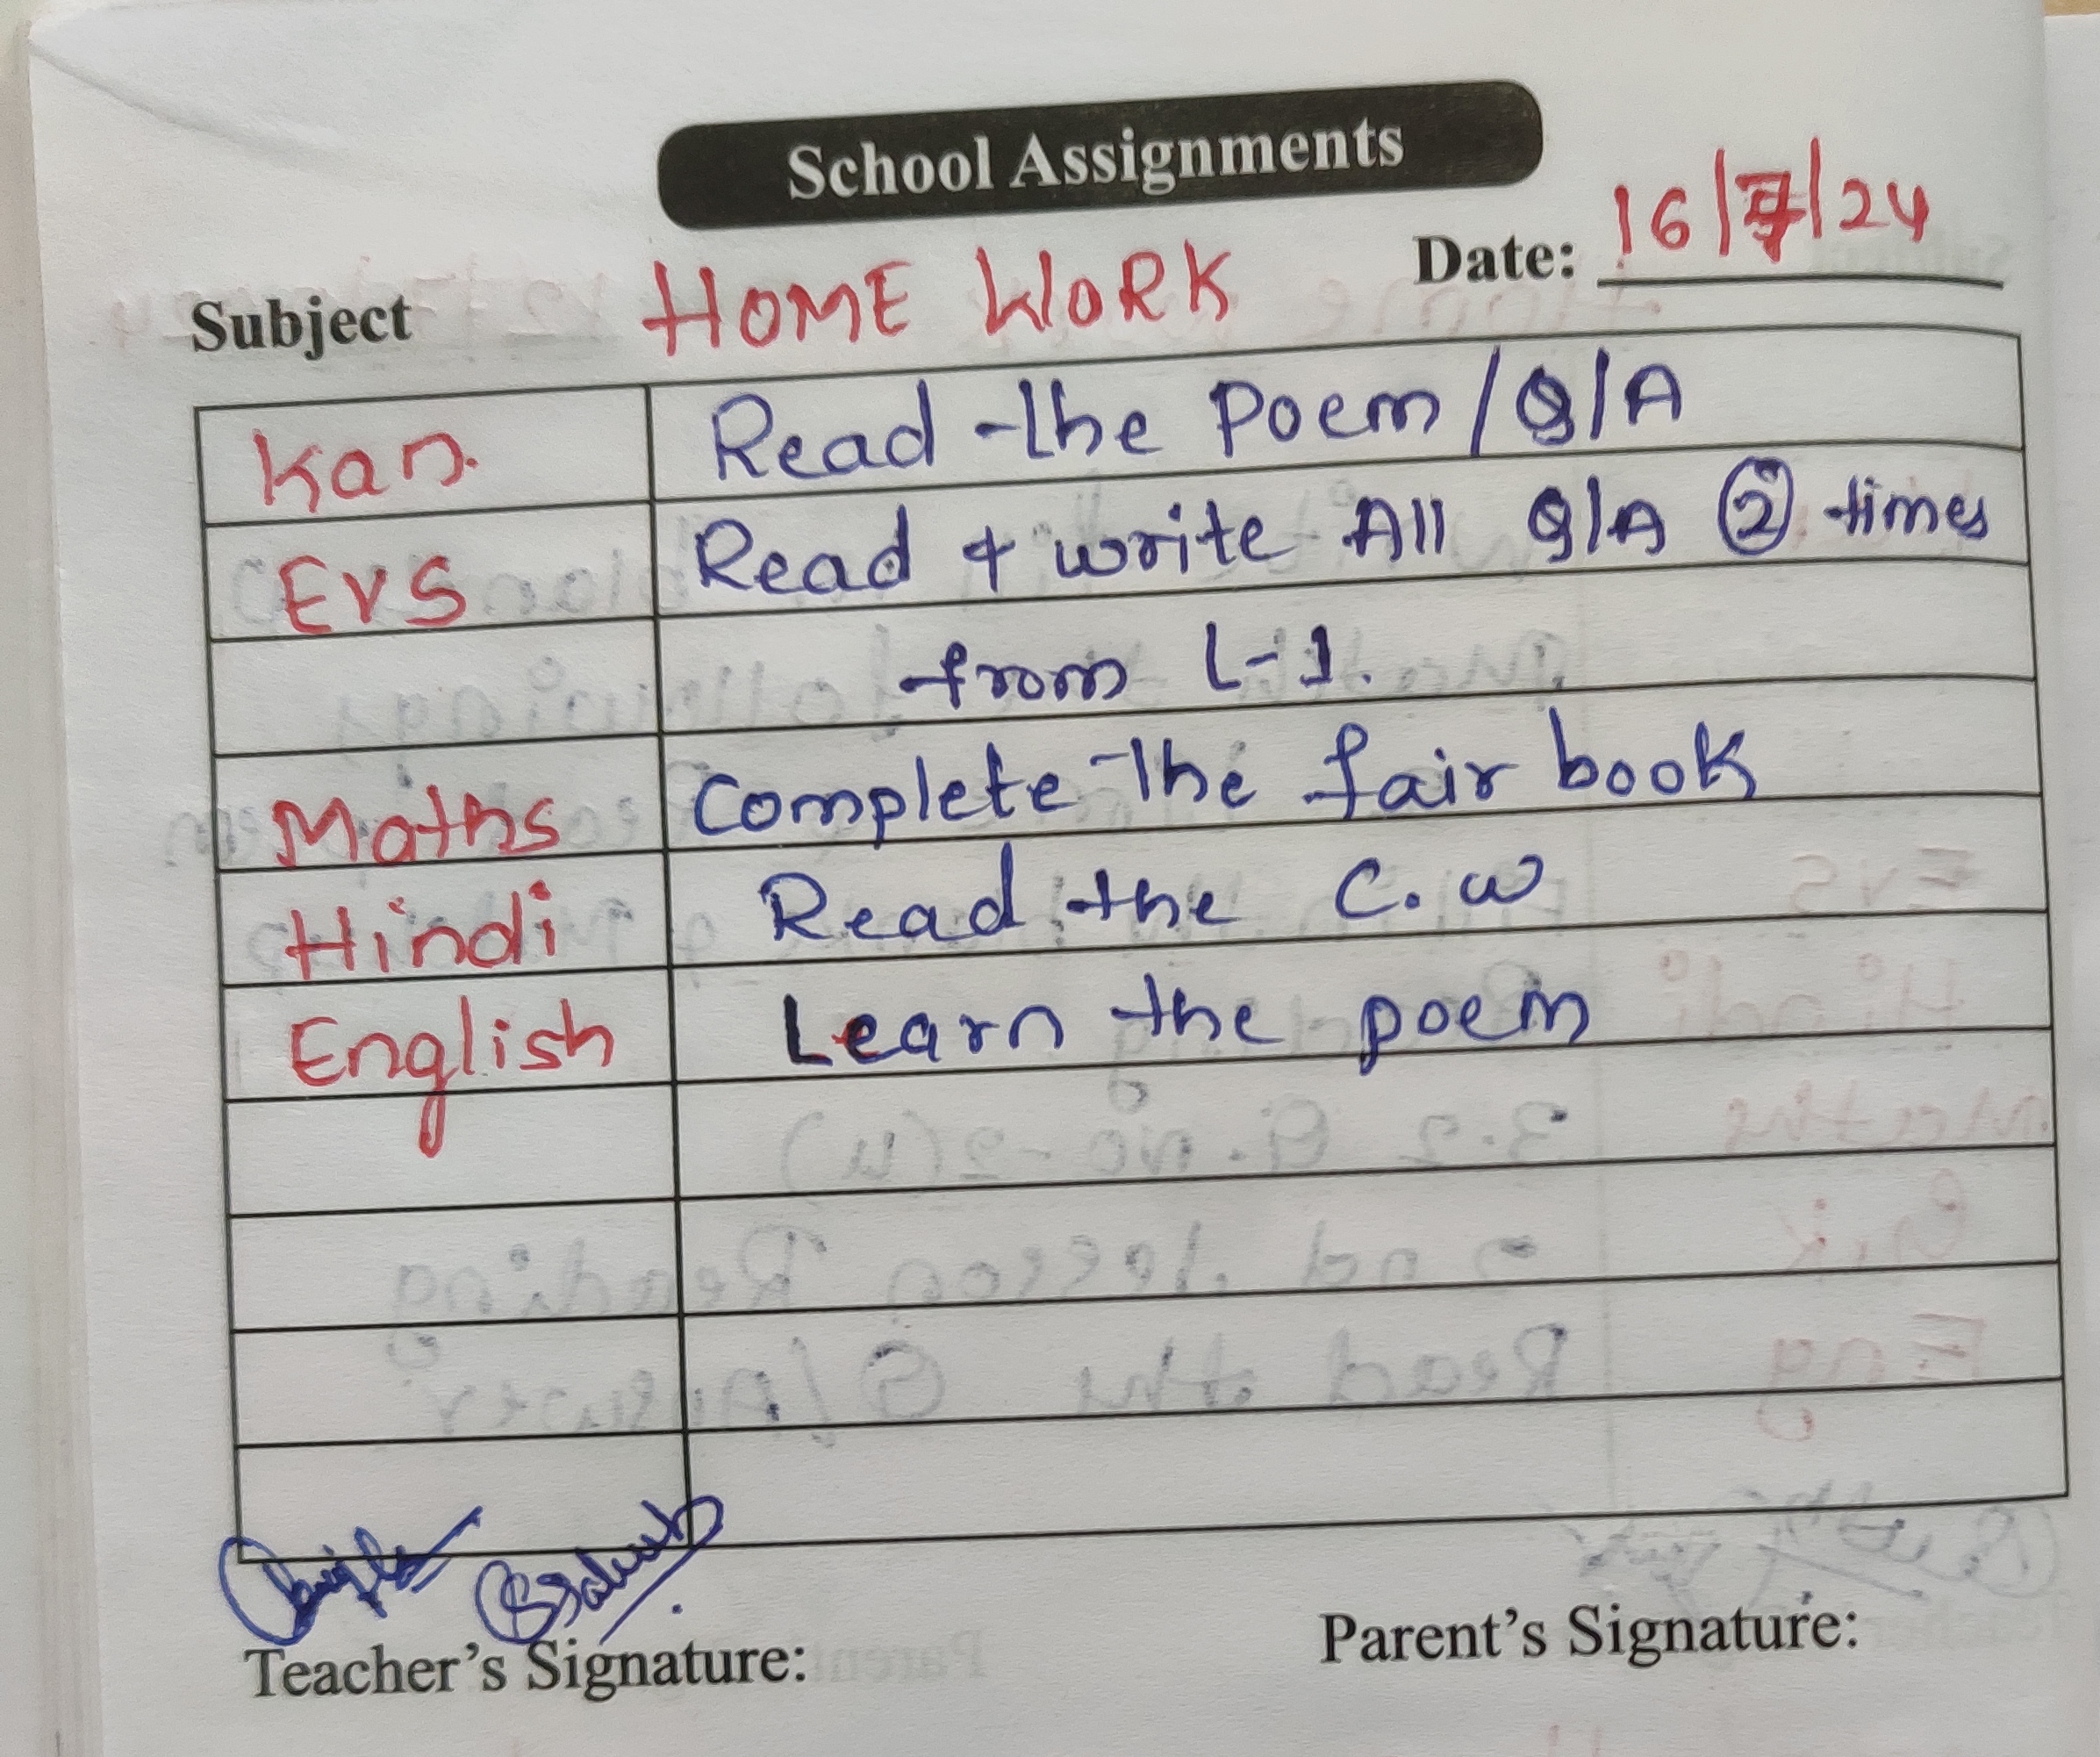 School Assignments
Date: 16/7/24
Subject HOME WORK
Kan. Read the Poem / Q/A
EVS Read & write All Q/A 2 times
from L-1.
Maths Complete the fair book
Hindi Read the C.W
English Learn the poem
Teacher's Signature: Parent's Signature: